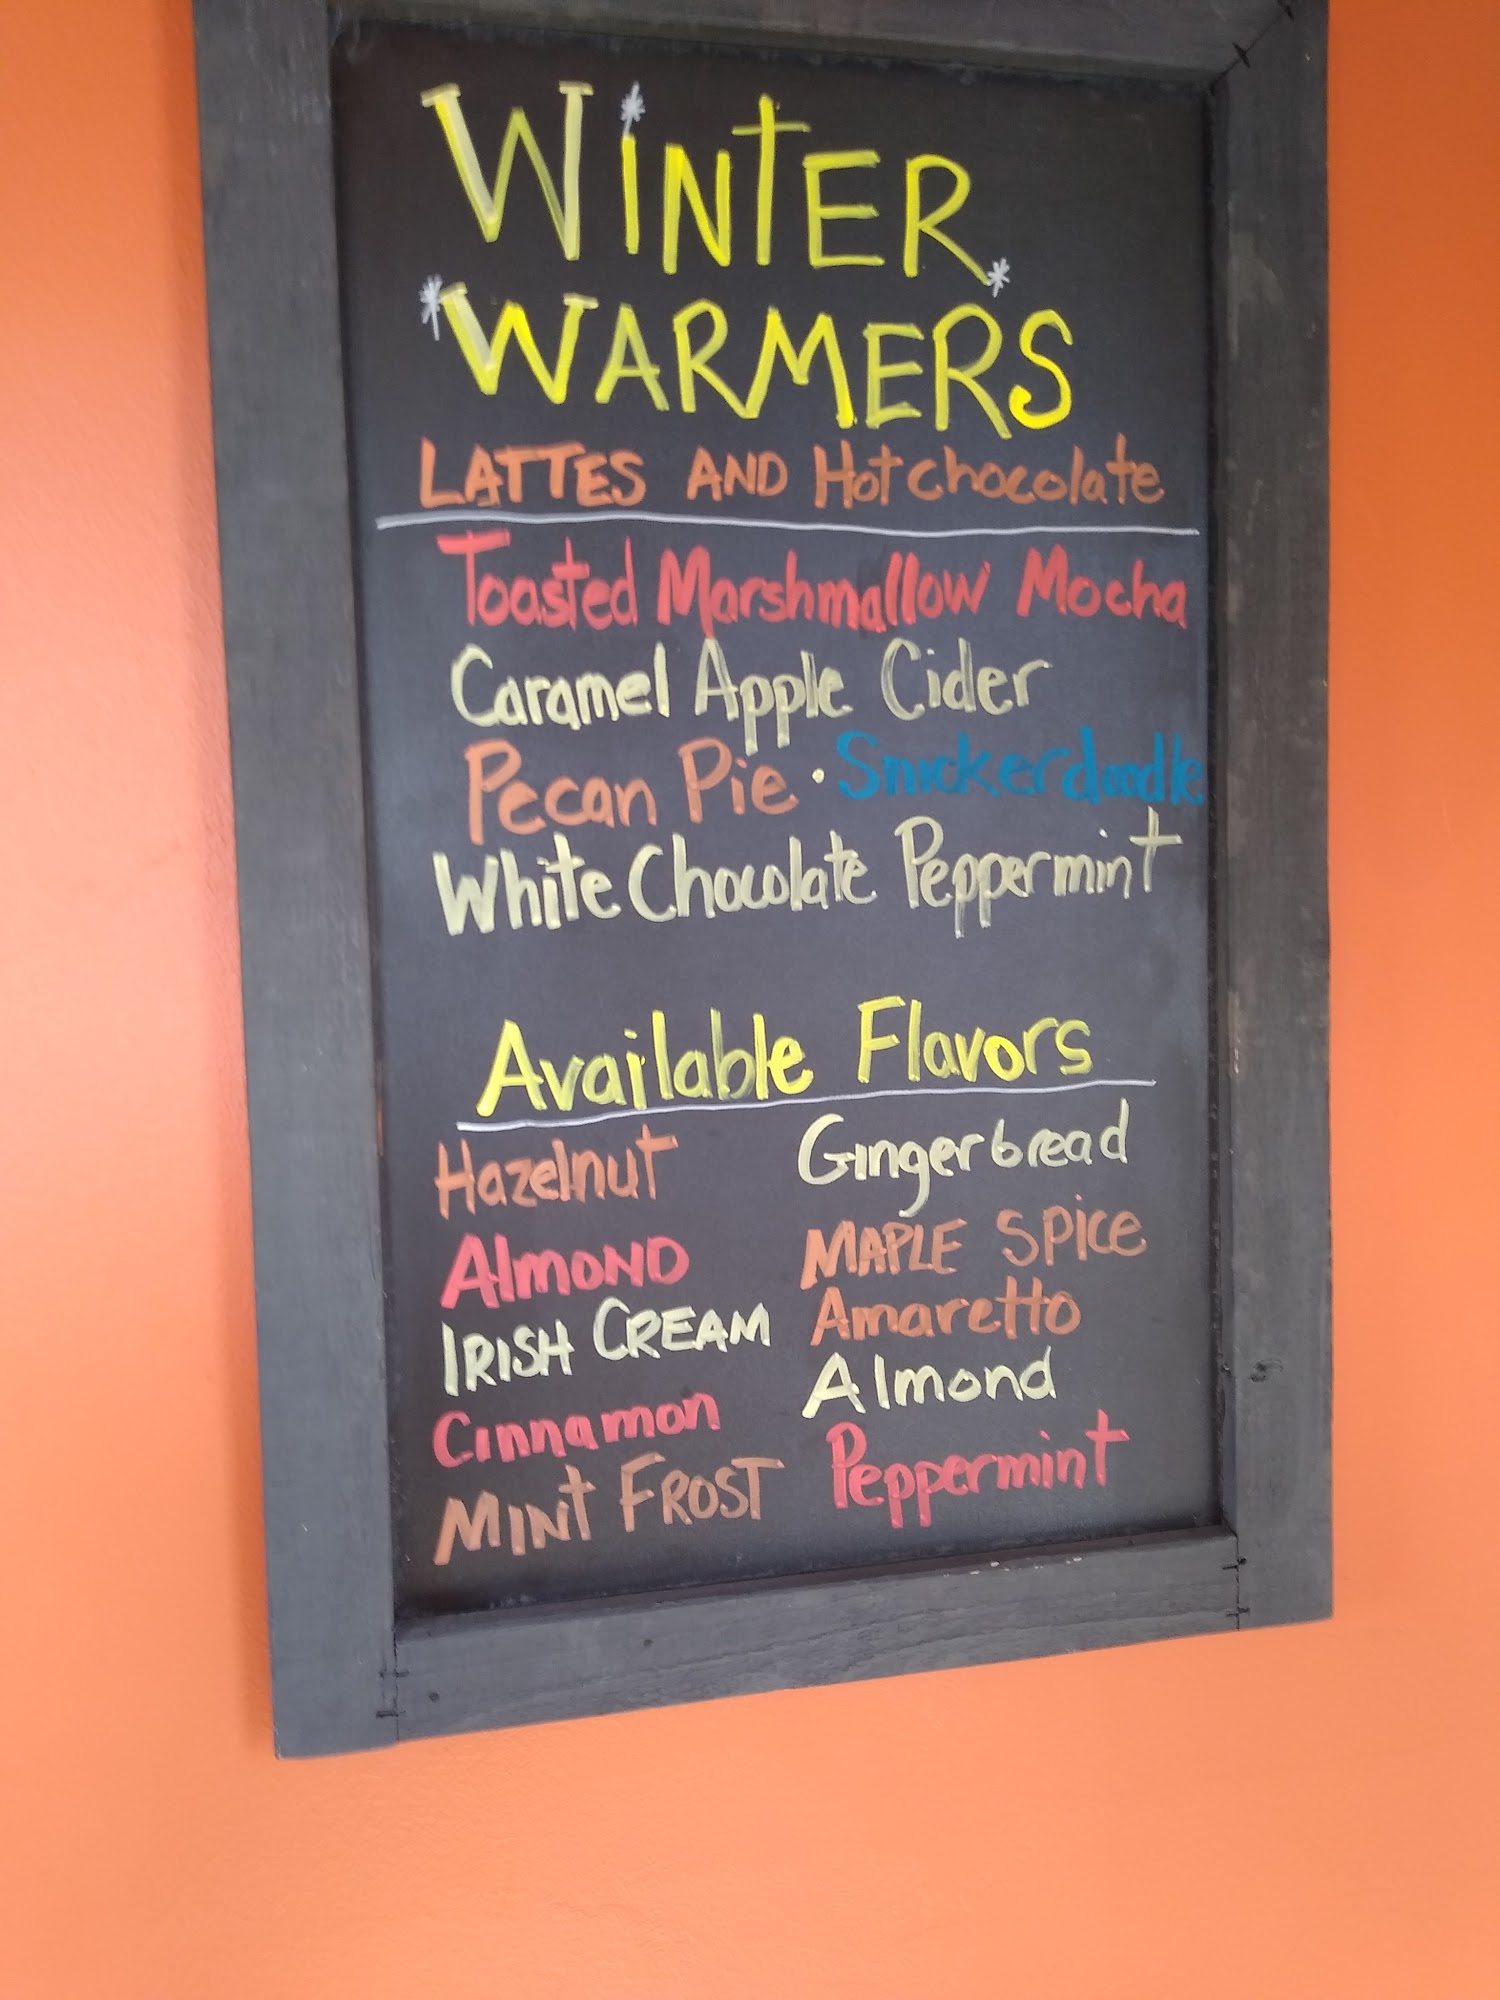 WiNTER
WARMERS
LATTES AND Hot chocolate
Toasted Marshmallow Mocha
Caramel Apple Cider
Pecan Pie · Snickerdoodle
White Chocolate Peppermint
Available Flavors
Hazelnut
Almond
IRISH CREAM
Cinnamon
MINT FROST
Gingerbread
MAPLE SPice
Amaretto
Almond
Peppermint